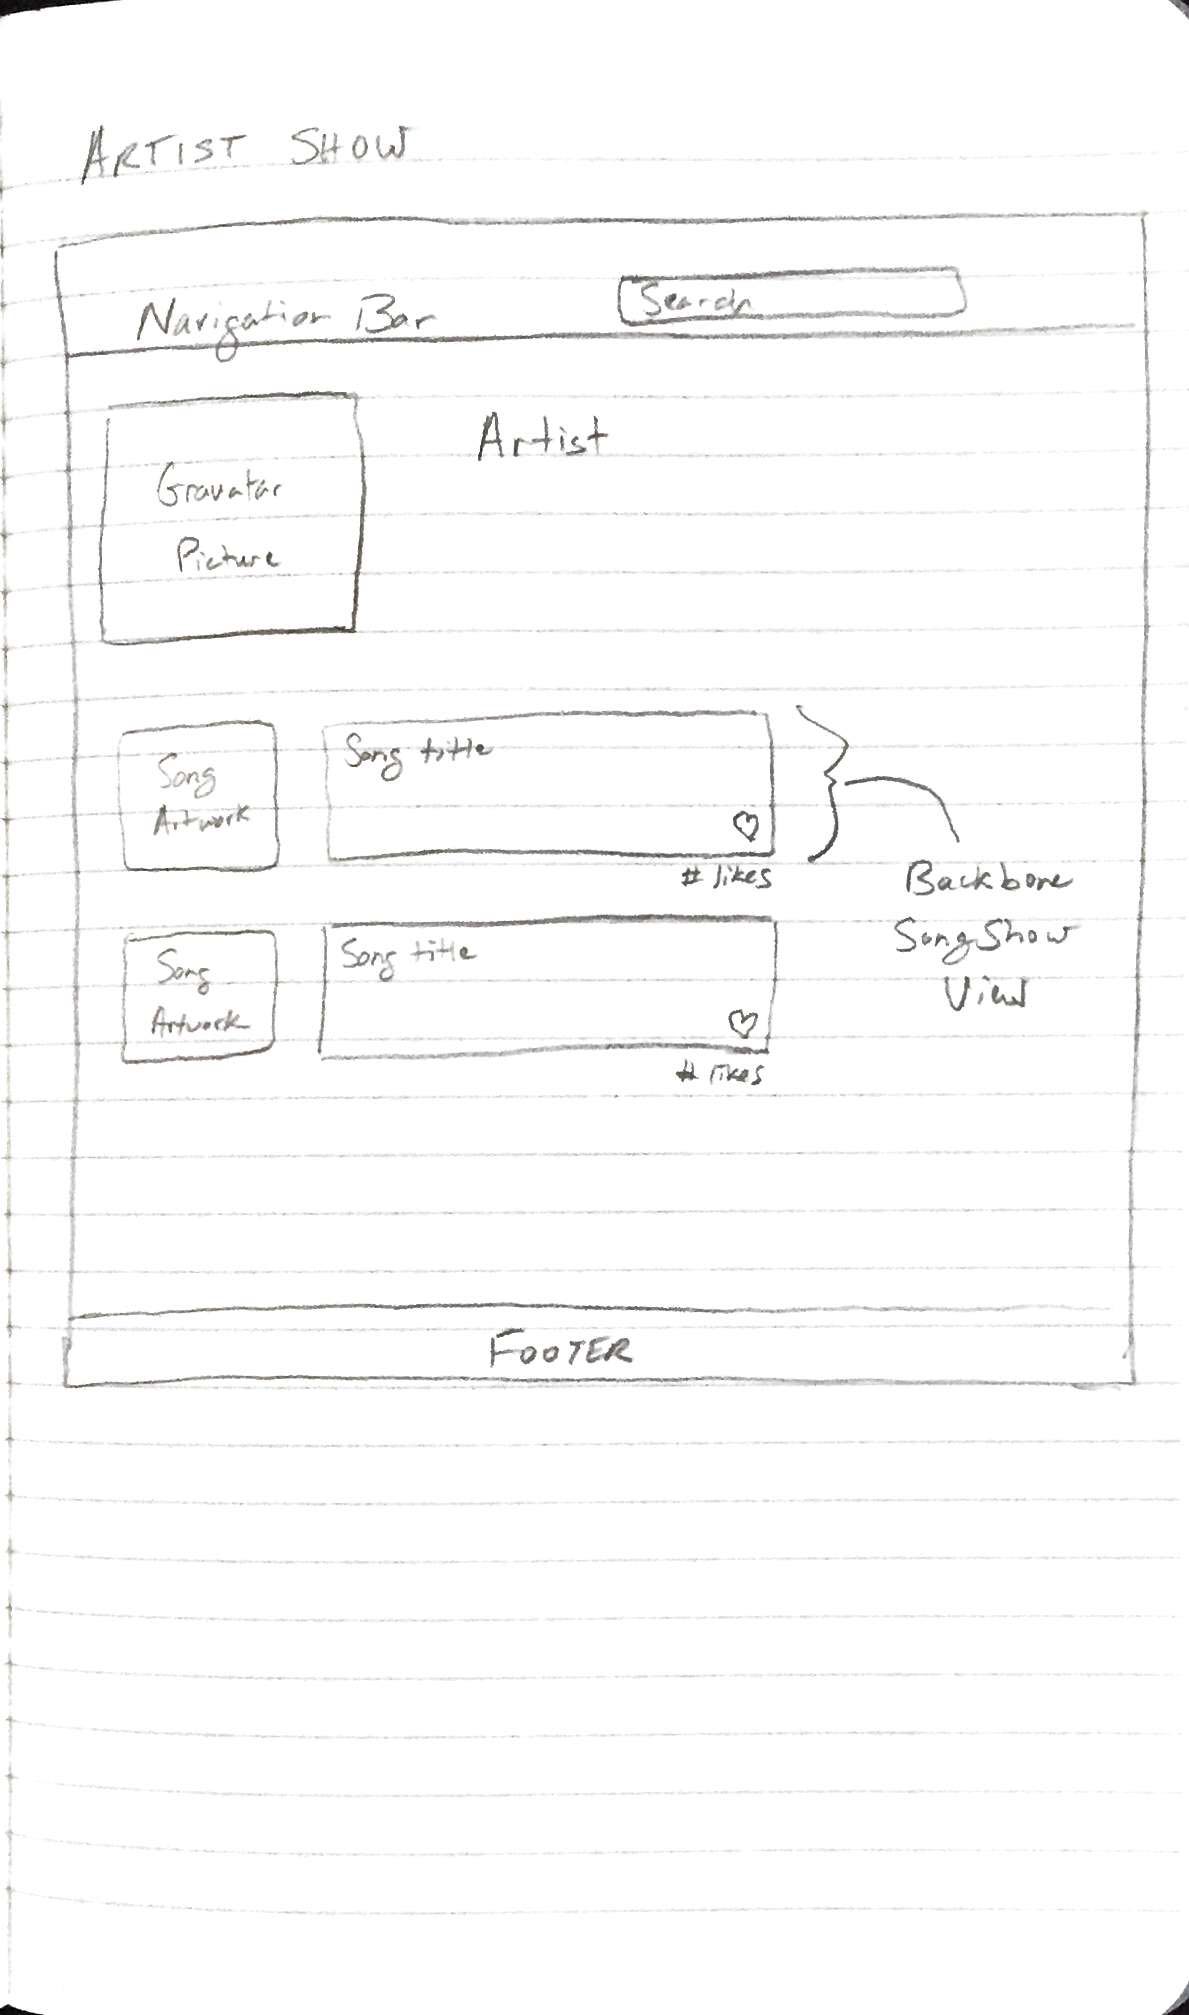 ARTIST SHOW
Navigation Bar
Search
Artist
Gravatar
Picture
Song
Artwork
Song title
# likes
Backbone
SongShow
View
Song
Artwork
Song title
# likes
FOOTER